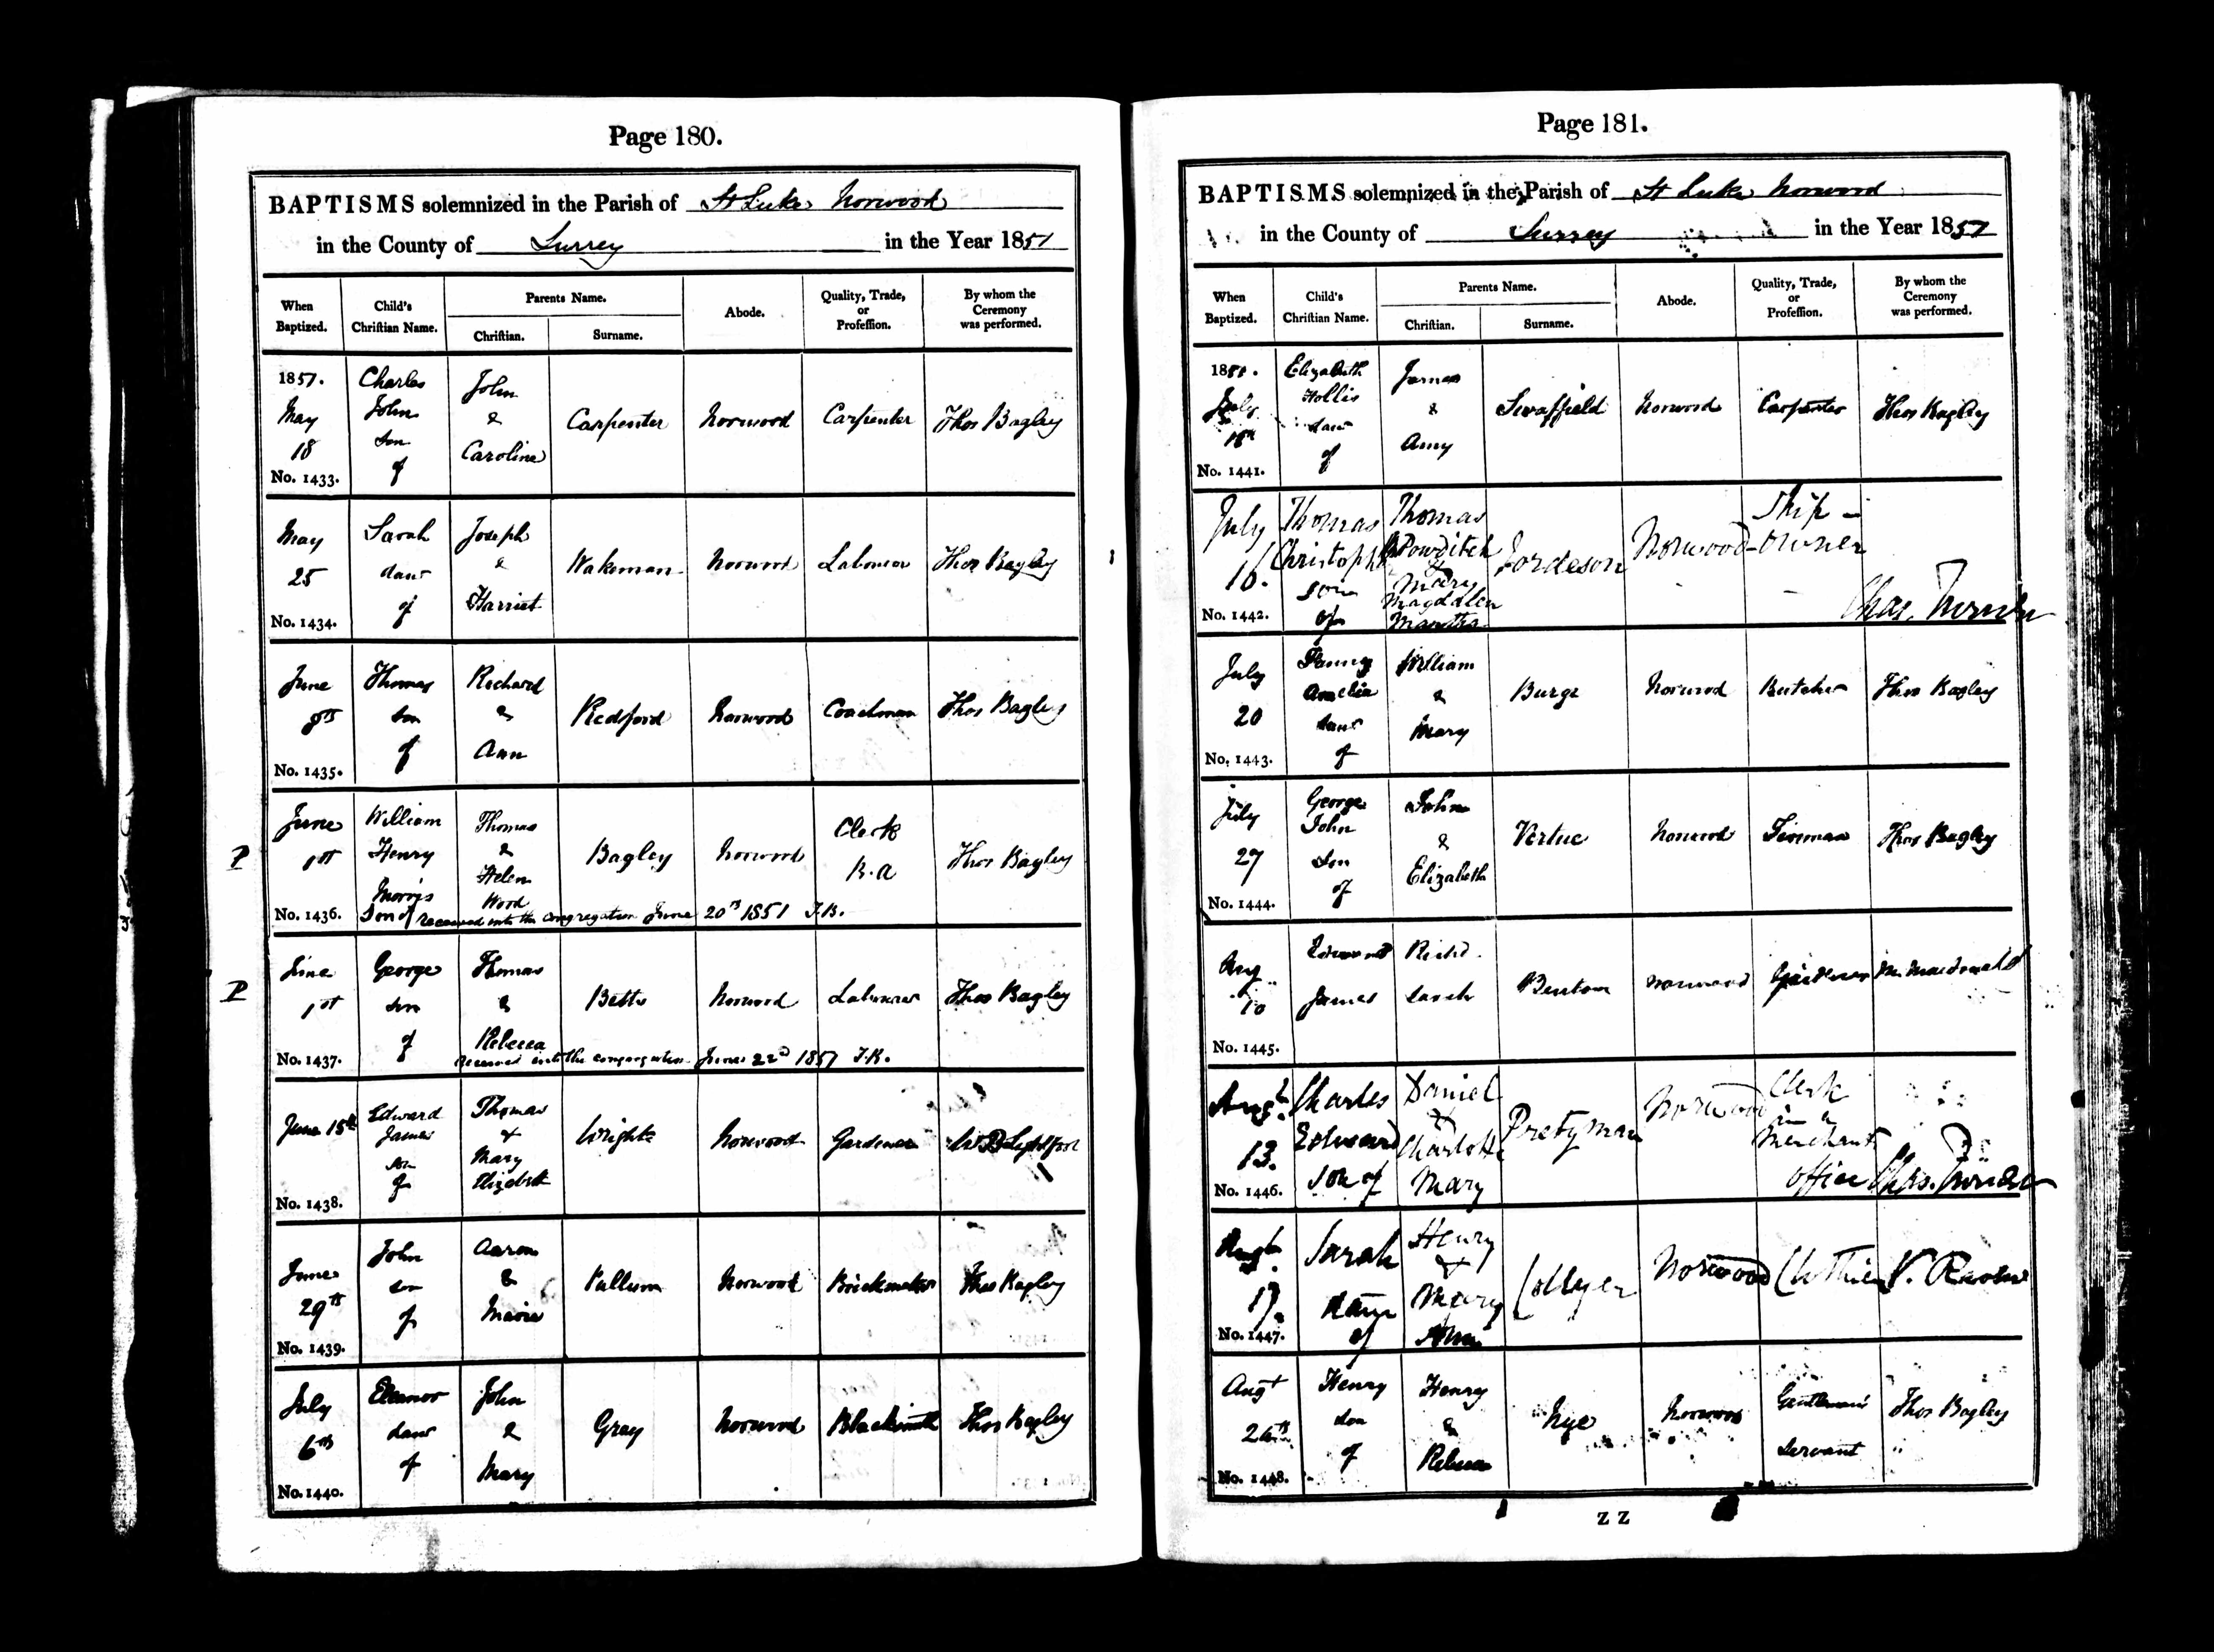 Page 180.
BAPTISMS solemnized in the Parish of St Luke Norwood
in the County of Surrey in the Year 1851
When Baptized. Child's Christian Name. Parents Name. Christian. Surname. Abode. Quality, Trade, or Profession. By whom the Ceremony was performed.
1851. May 18 No. 1433. Charles John son of John & Caroline Carpenter Norwood Carpenter Thos Bagley
May 25 No. 1434. Sarah daur of Joseph & Harriet Wakeman Norwood Labourer Thos Bagley
June 8th No. 1435. Thomas son of Richard & Ann Redford Norwood Coachman Thos Bagley
P June 1st No. 1436. William Henry Morris Son of Thomas & Helen Wood Bagley Norwood Clerk B.A Thos Bagley
received into the congregation June 20th 1851 T.B.
P June 1st No. 1437. George son of Thomas & Rebecca Betts Norwood Labourer Thos Bagley
Received into the congregation June 22d 1851 T.B.
June 15th No. 1438. Edward James son of Thomas & Mary Elizabeth Wright Norwood Gardener Lightfoot
June 29th No. 1439. John son of Aaron & Maria Pullum Norwood Brickmaker Thos Bagley
July 6th No. 1440. Eleanor daur of John & Mary Gray Norwood Blacksmith Thos Bagley
Page 181.
BAPTISMS solemnized in the Parish of St Luke Norwood
in the County of Surrey in the Year 1851
When Baptized. Child's Christian Name. Parents Name. Christian. Surname. Abode. Quality, Trade, or Profession. By whom the Ceremony was performed.
1851. July No. 1441. Elizabeth Hollis daur of James & Amy Swaffield Norwood Carpenter Thos Bagley
July 16. No. 1442. Thomas Christopher son of Thomas Powditch & Mary Magdalen Martha Jordeson Norwood Ship-Owner Chas. Turner
July 20 No. 1443. Fanny Amelia daur of William & Mary Burge Norwood Butcher Thos Bagley
July 27 No. 1444. George John Son of John & Elizabeth Vertue Norwood Thos Bagley
Aug 10 No. 1445. Edward James Richd. Sarah Norwood Gardener M. Macdonald
Augt. 13. No. 1446. Charles Edward Son of Daniel & Charlotte Mary Pretyman Norwood Clerk in a Merchants office Chas. Turner
Augt. 17. No. 1447. Sarah daur of Henry & Mary Ann Collyer Norwood Clothier
Augt No. 1448. Henry son of Henry & Rebecca Nye Norwood Gentleman's Servant Thos Bagley
Z Z